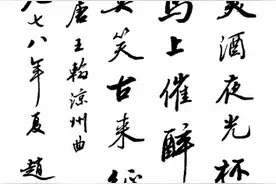 美酒夜光杯
馬上催醉
笑古来征
唐王翰涼州曲
七八年夏趙